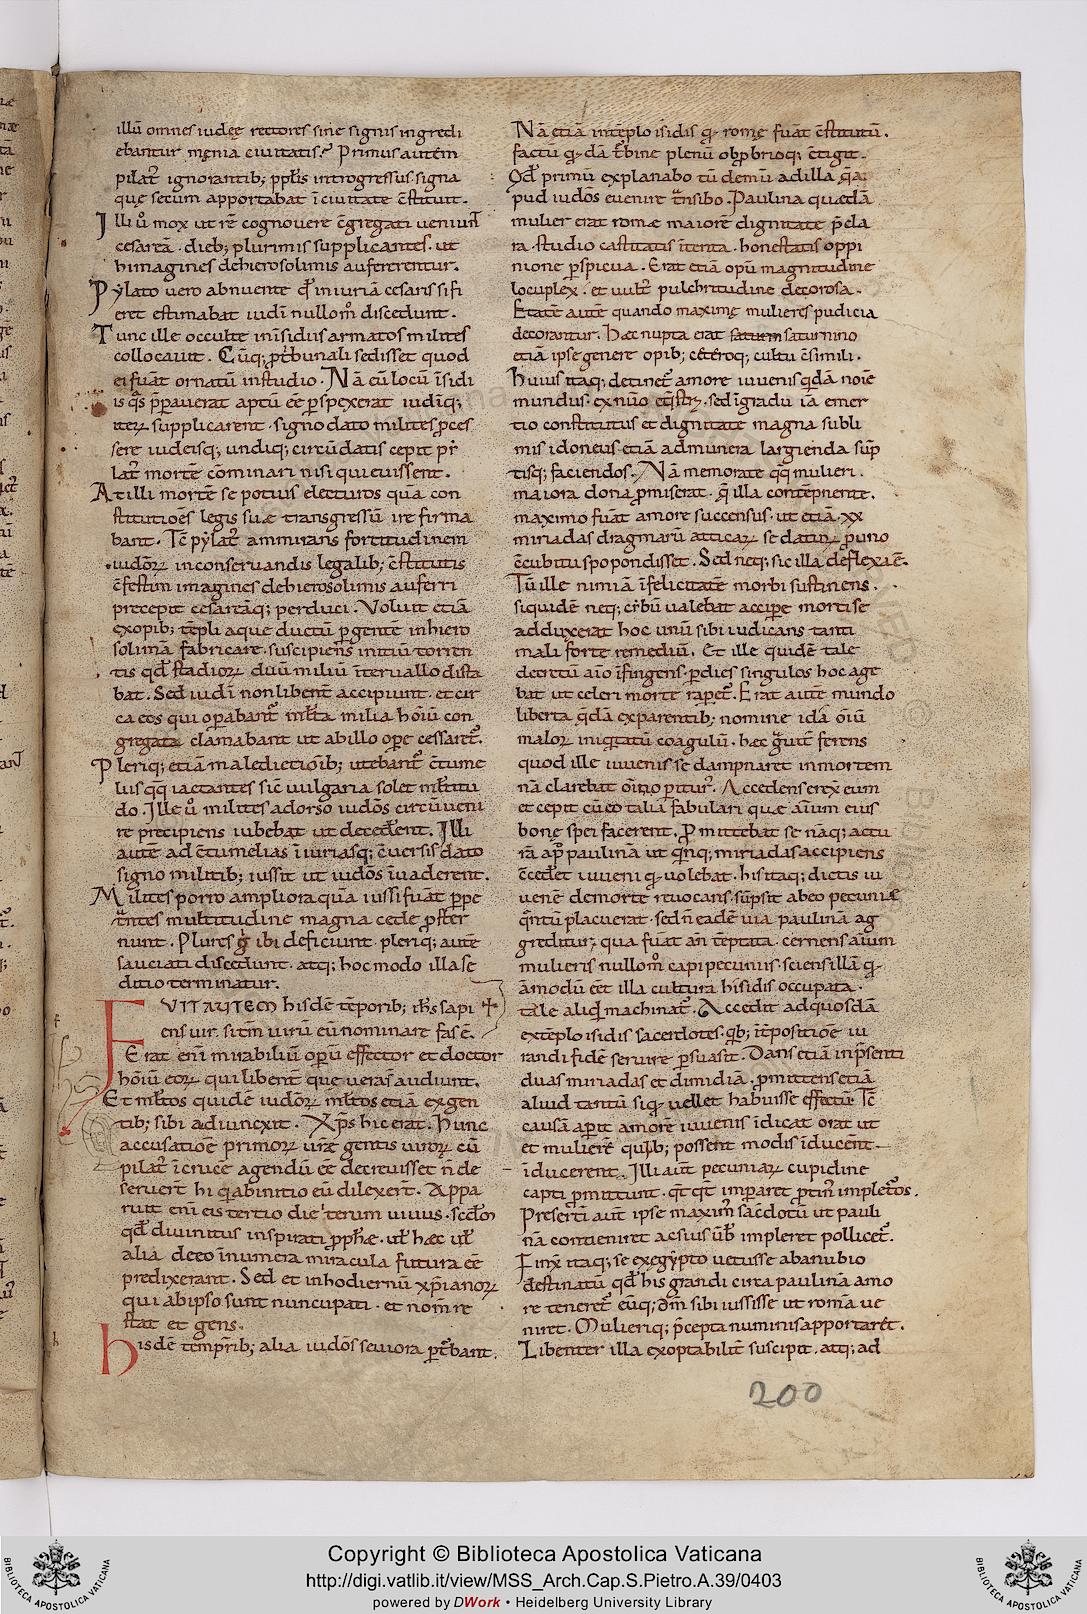 illū omnes iudęę rectores sine signis ingredi
ebantur męnia ciuitatis. Primus autem
pilat᷒ ignorantib; pp̄lis introgressus signa
que secum apportabat ī ciuitate c̄stituit.
Illi ū mox ut rē cognouere c̄gregati ueniunt
cesareā. dieb; plurimis supplicantes. ut
himagines dehierosolimis aufererentur.
Pylato uero abnuente qđ iniuriā cesaris si fi
eret estimabat iudī nullom̊ discedunt.
Tunc ille occulte inīsidiis armatos milites
collocauit. Cūq; p̄ tribunali sedisset quod
ei fuāt ornatum in studio. Nā cū locū īsidi
is q̄s p̄parauerat aptū eē perspexerat iudīq;
iteꝝ supplicarent. signo dato milites p̄ces
sere iudeisq; undiq; circūdatis cepit py
lat᷒ mortē comminari nisi quieuissent.
At illi mortē se potius electuros quā con
stitutioēs legis suæ transgressū ire firma
bant. Tc̄ pylat᷒ ammirans fortitudinem
iudoꝝ inconseruandis legalib; c̄stitutis
c̄festim imagines dehierosolimis auferri
precepit cesareāq; perduci. Voluit etiā
exopib; tēpli aque ductū ꝑgentē inhiero
solimā fabricare. suscipiens initiū torren
tis qđ stadioꝝ duū miliū īteruallo dista
bat. Sed iudī non libent̄ accipiunt. et cir
ca eos qui operabant᷒ mlta milia hoīū con
gregata clamabant ut abillo ope cessaret᷒.
Pleriq; etiā maledictiōib; utebant᷒ c̄tume
lias qq iactantes sic̄ uulgaria solet mltitu
do. Ille ū milites adorso iudos circūueni
re precipiens iubebat ut decederent. Illi
autē ad c̄tumelias īiuriasq; c̄uersis dato
signo militib; iussit ut iudos īuaderent.
Milites porro ampliora quā iussi fuāt ꝑpe
trantes multitudine magna cede p̄ster
nunt. Plures g̊ ibi deficiunt. pleriq; autē
sauciati discedunt. atq; hoc modo illa se
ditio terminatur.
FVIT AUTEM hisdē tēporib; ih̄s sapi
ens uir. si tn̄ uirū eū nominare fas ē.
Erat eni mirabiliū opū effector et doctor
hoīū eoꝝ qui libent᷒ que uera s̄ audiunt.
Et mltos quidē iudoꝝ mltos etiā ex gen
tib; sibi adiunxit. Xp̄s hic erat. Hunc
accusatioē primoꝝ uīræ gentis uiroꝝ cū
pilat᷒ īcruce agendū eē decreuisset n̄ de
seruert̄ hi q̄ abinitio eū dilexert̄. Appa
ruit eni eis tertio die iterum uiuus. scdm̄
qđ diuinitus inspirati p̄phæ. ul̄ hæc ul̄
alia deeo īnumera miracula futura eē
predixerant. Sed et inhodiernū xp̄ianoꝝ
qui abipso sunt nuncupati. et nom̄ re
stat et gens.
Hisdē temprib; alia iudos seuiora p̄turbant.
Nā etiā intēplo isidis q̄ romę fuāt c̄stitutū.
factū q̄ dā turbine plenū obprobrioq; c̄tigit.
Qđ primū explanabo tū demū ad illa q̄ a
pud iudos euenire trnsibo. Paulina quædā
mulier erat romæ maiorē dignitate p̄cla
ra. studio castitatis īntenta. honestatis oppi
nione ꝑspicua. Erat etiā opū magnitudine
locuplex. et uult᷒ pulchritudine decorosa.
Etate autē quando maxime mulieres pudicia
decorantur. Hæc nupta erat saturnino
etiā ipse genere opib; ceteroq; cultu c̄simili.
Huius itaq; detinet᷒ amore iuuenis q̄dā noīe
mundus. ex nūo eq̄striꝝ. sed īgradu iā emer
tio constitutus et dignitate magna subli
mis idoneus etiā admunera largienda sup
tisq; faciendos. Nā memorate qq mulieri.
maiora dona p̄miserat. q̄ illa contēpnente.
maximo fuāt amore succensus. ut etiā xx
miriadas dragmarū atticaꝝ se daturū p̄ uno
c̄cubitu spopondisset. Sed neq; sic illa deflexa ē.
Tū ille nimiā īfelicitatē morbi sustinens.
siquidē neq; cybū ualebat accipe morti se
adduxerat hoc unū sibi iudicans tanti
mali forte remediū. Et ille quidē tale
decretū aīo īfingens. ꝑ dies singulos hoc age
bat ut celeri morte raperet᷒. Erat autē mundo
liberta q̄dā exparentib; nomine ida oīū
maloꝝ iniqtatū coagulū. hæc g̊uit̄ ferens
quod ille iuuenis se dampnaret inmortem
nā clarebat oīno ꝑitur᷒. Accedens erex̄ eum
et cepit cū eo talia fabulari quæ aīum eius
bonę spei facerent. Promittebat se nāq; actu
rā ap̊ paulinā ut q̄nq; miriadas accipiens
c̄cedet iuueni q̄ uolebat. his itaq; dictis iu
uenē demorte reuocans. sūpsit abeo pecuniæ
q̄ntū placuerat. sed n̄ eadē uia paulinā ag
greditur. qua fuāt an̄ tēptata. cernens aīum
mulieris nullom̊ capi pecuniis. sciens illā q̄
āmodū eēt illa cultura hisidis occupata.
tale aliqđ machinat᷒. Accedit adquosdā
extēplo isidis sacerdotes. qb; īterpositiōe iu
randi fidē seruire ꝑsuasit. Dans etiā inp̄senti
duas miriadas et dimidiā. p̄mittens etiā
aliud tantū siq̄ uellet habuisse effectū. Tc̄
causā aperit amorē iuuenis īdicat orat ut
et mulierē quib; possent modis īducent.
īducerent. Illi aut̄ pecuniaꝝ cupidine
capti p̄mittunt. q̄t q̄t imparet protin᷒ impletos.
Presertī aut̄ ipse maxim᷒ sacdotū ut pauli
nā conueniret acsi usu ūb impleret pollicet᷒.
Finx̄ itaq; se exęgypto uenisse abanubio
destinatū qđ his grandi circa paulinā amo
re teneret᷒ eūq; dm̄ sibi iussisse ut romā ue
niret. Mulieriq; p̄cepta numinis apportaret.
Libenter illa exoptabilit̄ suscipit. atq; ad
200
Copyright © Biblioteca Apostolica Vaticana
http://digi.vatlib.it/view/MSS_Arch.Cap.S.Pietro.A.39/0403
powered by DWork • Heidelberg University Library